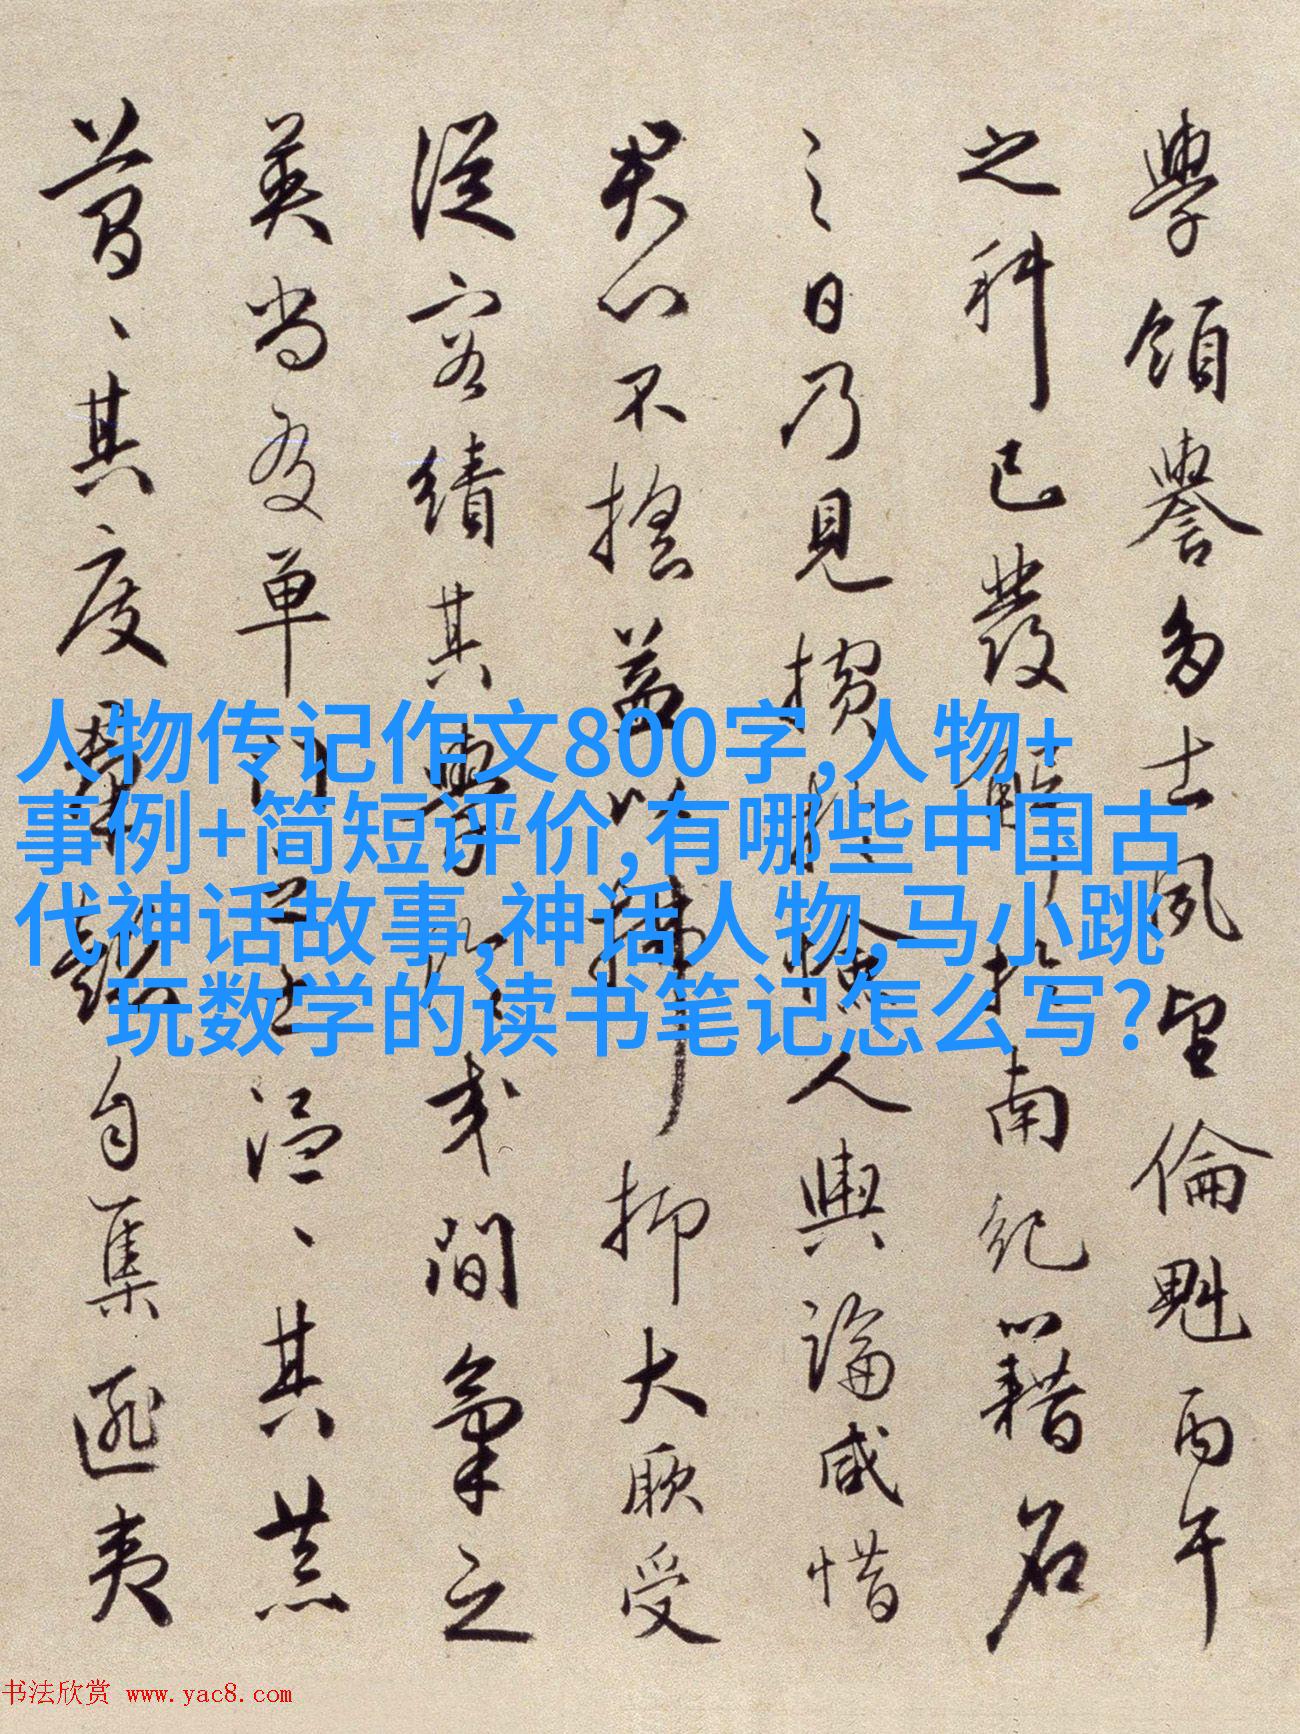 學領譽多士夙望倫魁丙午
之科已發解於南紀籍名
之日乃見擯於儉人輿論咸惜
君心不搖益以
抑大耐受
從容績其學
或間氣之
英尚友單
温、其恭
昔、其度
自集遜夷
人物传记作文800字,人物+
事例+简短评价,有哪些中国古
代神话故事,神话人物,马小跳
玩数学的读书笔记怎么写?
书法欣赏 www.yac8.com